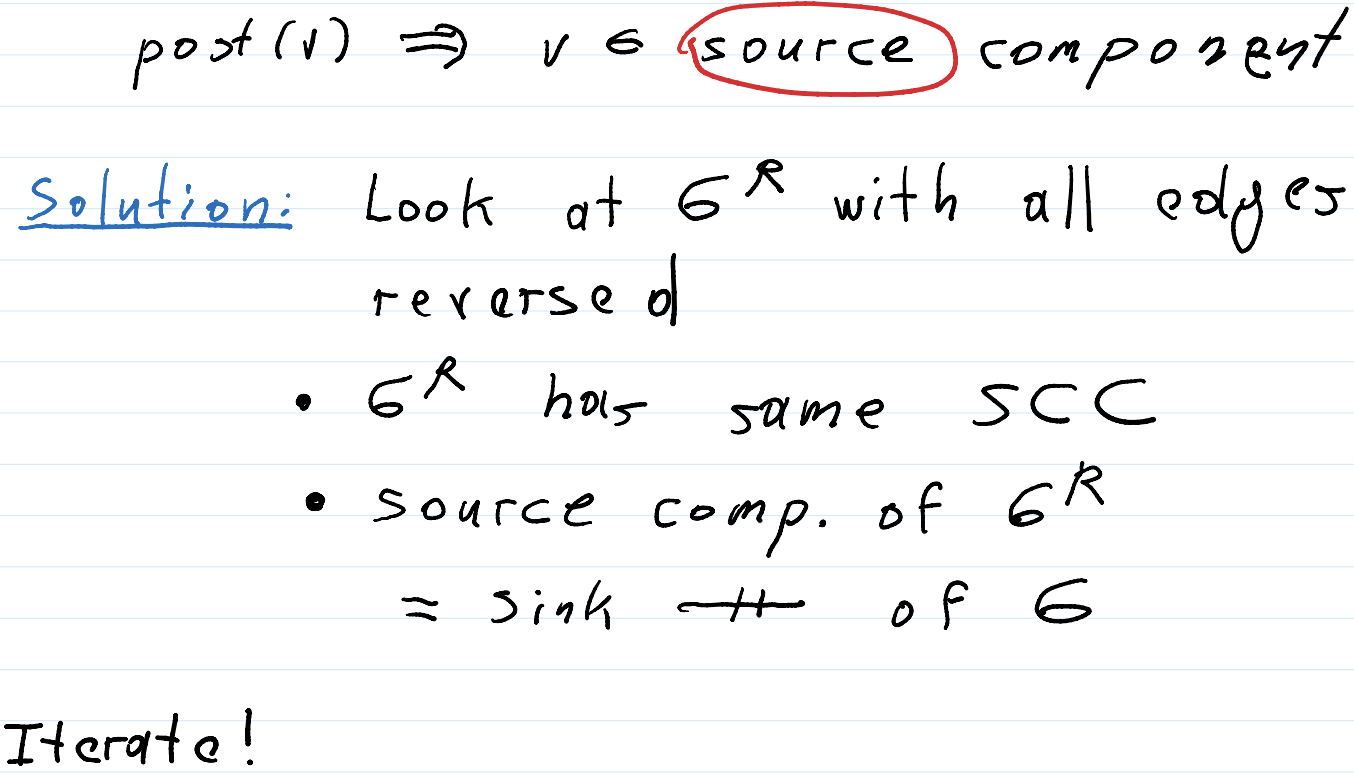 post(v) ⇒ v ∈ source component
Solution: Look at G^R with all edges
reversed
• G^R has same SCC
• source comp. of G^R
= sink —||— of G
Iterate!